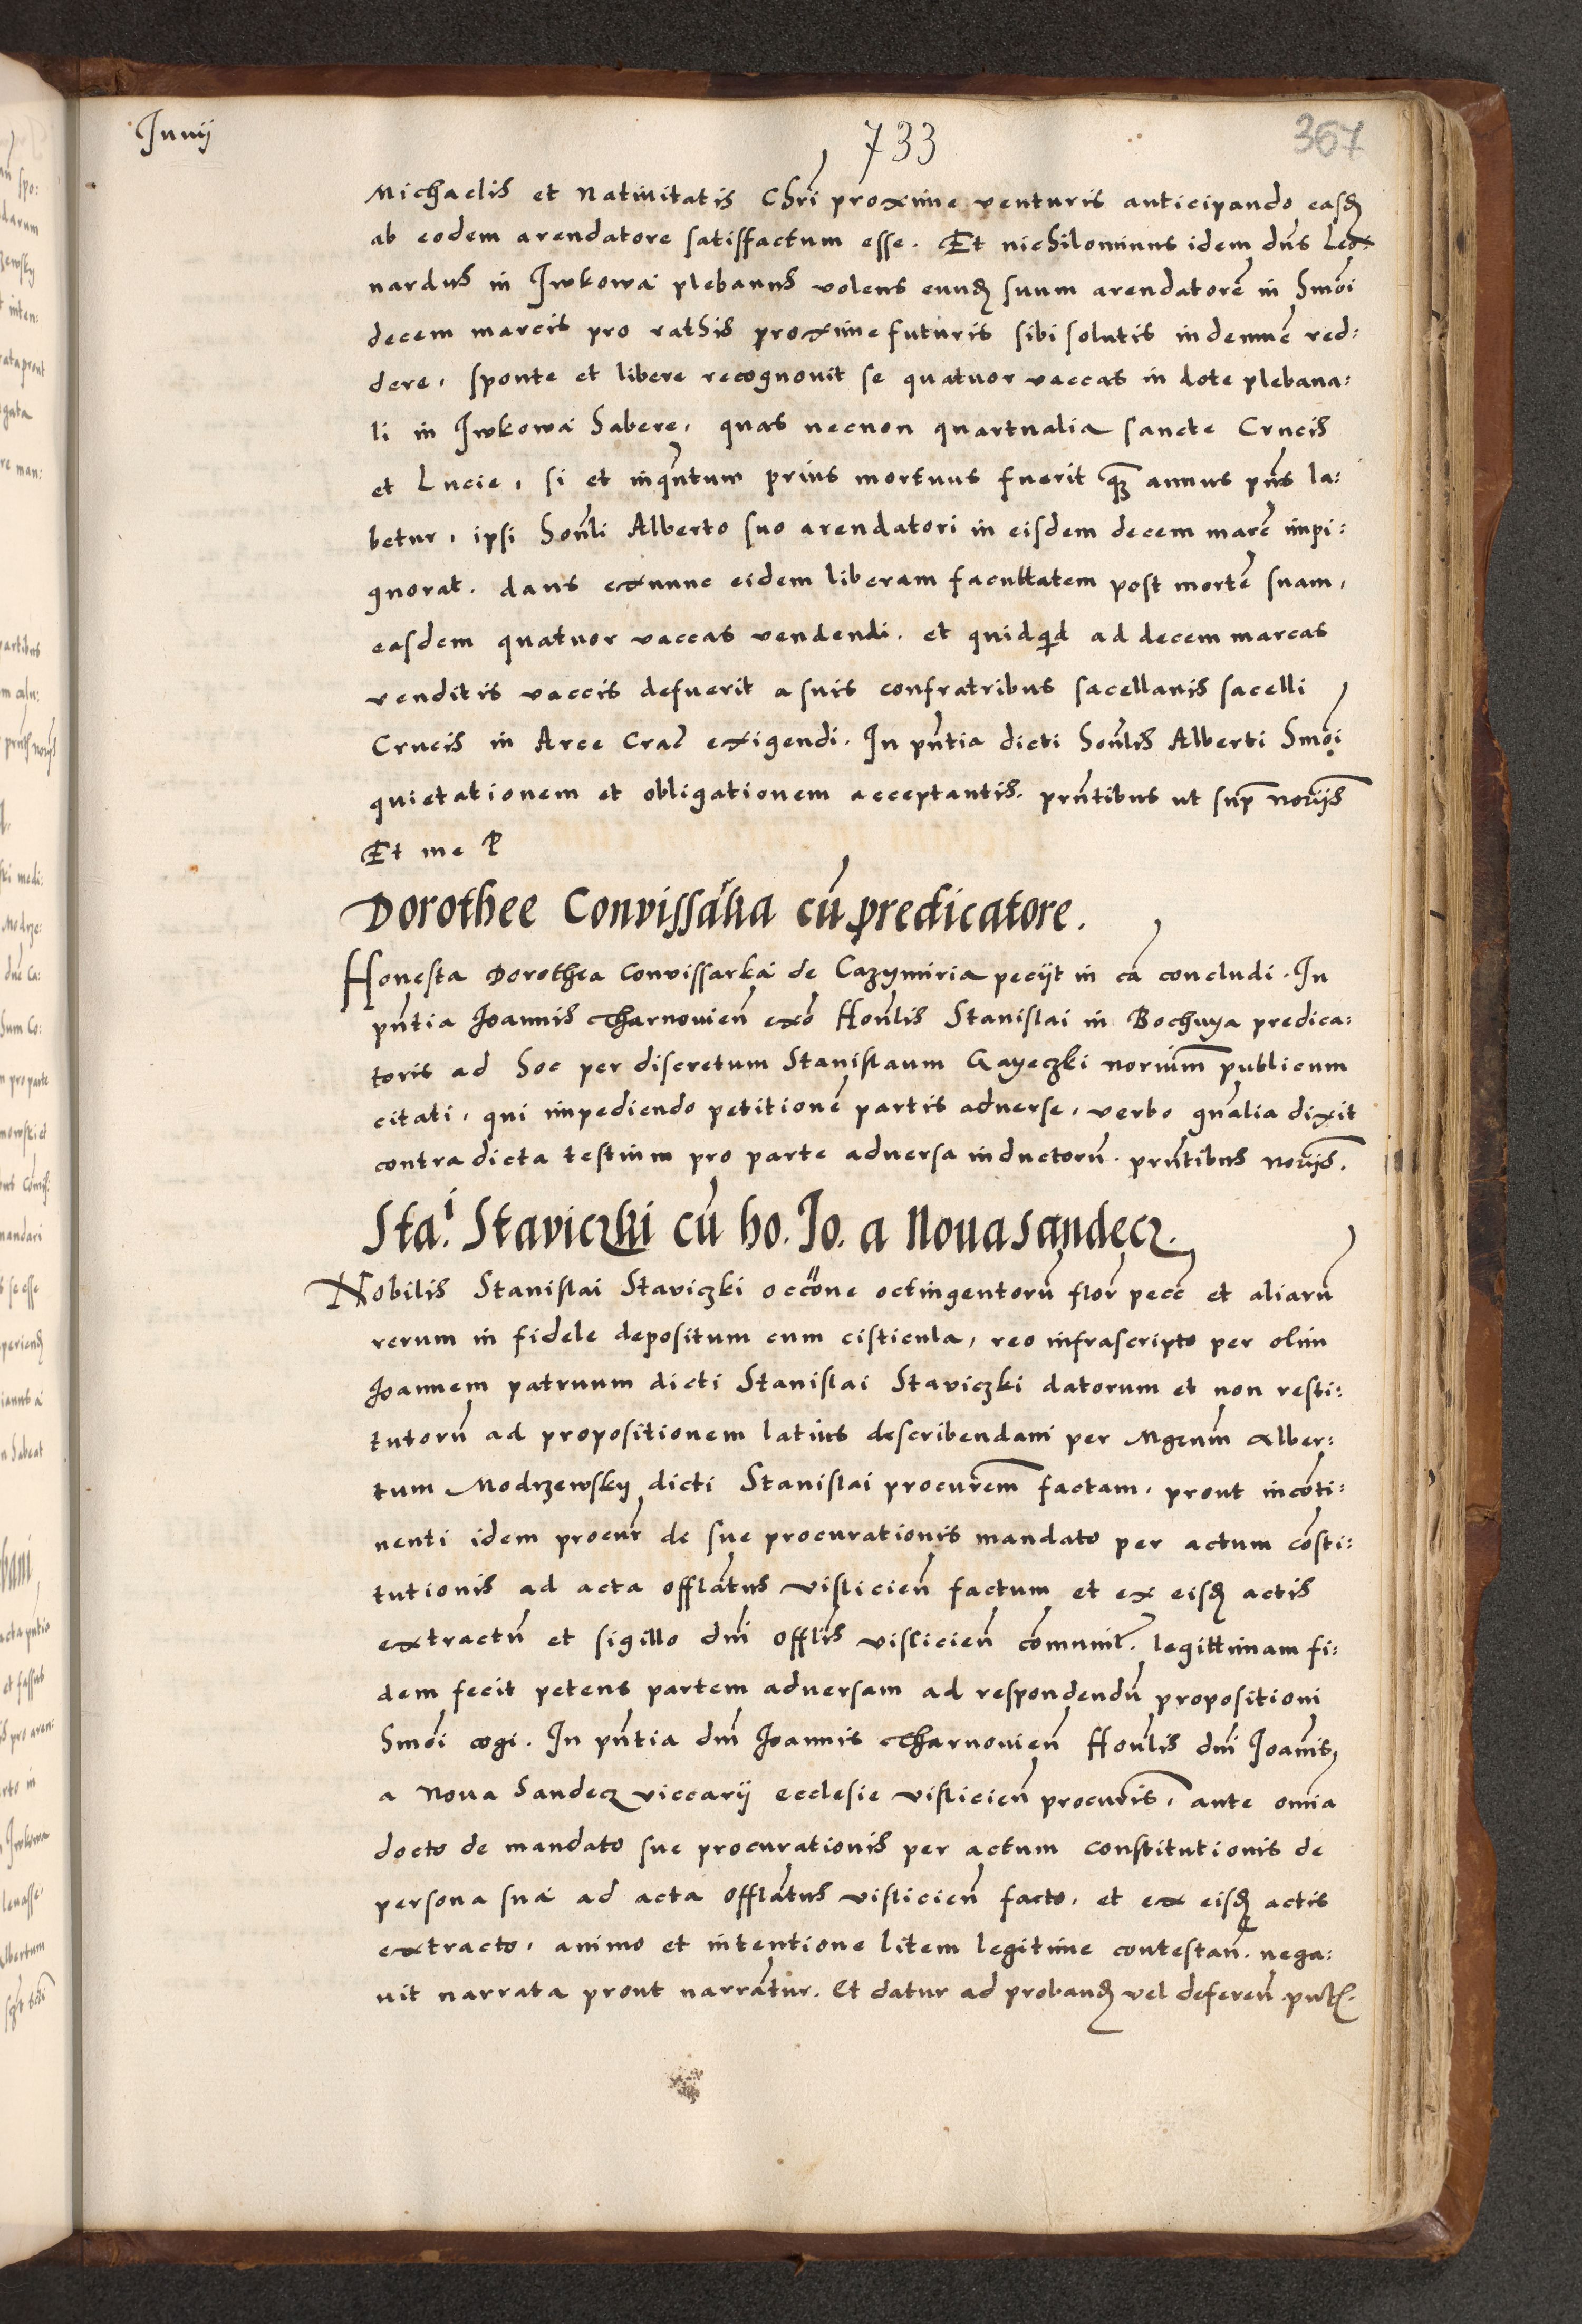 Junij
733
367
Michaelis et Nativitatis Chri̅ proxime venturis anticipando easd̅
ab eodem arendatore satisfactum esse. Et nichilominus idem dn̅s Leo=
nardus in Jwkowa plebanus volens eund̅ suum arendatorē in hmo̅i
decem marcis pro rathis proxime futuris sibi solutis indemnē red:
dere, sponte et libere recognovit se quatuor vaccas in dote plebana:
li in Jwkowa habere, quas necnon quartualia sancte Crucis
et Lucie, si et inqu̅ntum prius mortuus fuerit q̅ȝ annus pn̅s la:
betur, ipsi hon̅li Alberto suo arendatori in eisdem decem marc̅ impi:
gnorat. dans exnunc eidem liberam facultatem post mortē suam,
easdem quatuor vaccas vendendi. et quidqd̅ ad decem marcas
venditis vaccis defuerit a suis confratribus sacellanis sacelli
Crucis in Arce Crac̅ exigendi. In pn̅tia dicti hon̅lis Alberti hmo̅i
quietationem et obligationem acceptantis. prn̅tibus ut sup̅ nor̅ijs
Et me P
Dorothee Convissarka cū predicatore.
Honesta Dorothea Convissarka de Cazymiria pecijt in ca̅ concludi. In
pn̅tia Joannis Tharnovien̅ exo̅ Hon̅lis Stanislai in Bochnya predica:
toris ad hoc per discretum Stanislaum Gayeczki norium̅ publicum
citati, qui impediendo petitionē partis adverse, verbo gn̅alia dixit
contra dicta testium pro parte adversa inductorū. prn̅tibus nor̅ijs.
Sta.i Staviczki cū ho. Jo. a Nova Sandecz.
Nobilis Stanislai Staviczki occo̅ne octingentorū flor̅ pecc̅ et aliarū
rerum in fidele depositum cum cisticula, reo infrascripto per olim
Joannem patruum dicti Stanislai Staviczki datorum et non resti:
tutorū ad propositionem latius describendam per Mgrum̅ Alber:
tum Modrzewsky dicti Stanislai procurem̅ factam, prout incōti:
nenti idem procur̅ de sue procurationis mandato per actum cōsti:
tutionis ad acta offlat̅us vislicien̅ factum et ex eisd̅ actis
extractū et sigillo dn̅i offl̅is vislicien̅ cōmunit̅. legittimam fi:
dem fecit petens partem adversam ad respondendū propositioni
hmo̅i cogi. In pn̅tia dn̅i Joannis Tharnovien̅ Hon̅lis dn̅i Joan̅is
a Nova Sandecz viccarij ecclesie vislicien̅ procur̅is, ante om̅ia
docto de mandato sue procurationis per actum constitutionis de
persona sua ad acta offlat̅us vislicien̅ facto, et ex eisd̅ actis
extracto, animo et intentione litem legitime contestan̅. nega:
vit narrata prout narrāntur. Et datur ad proband̅ vel deferen̅.